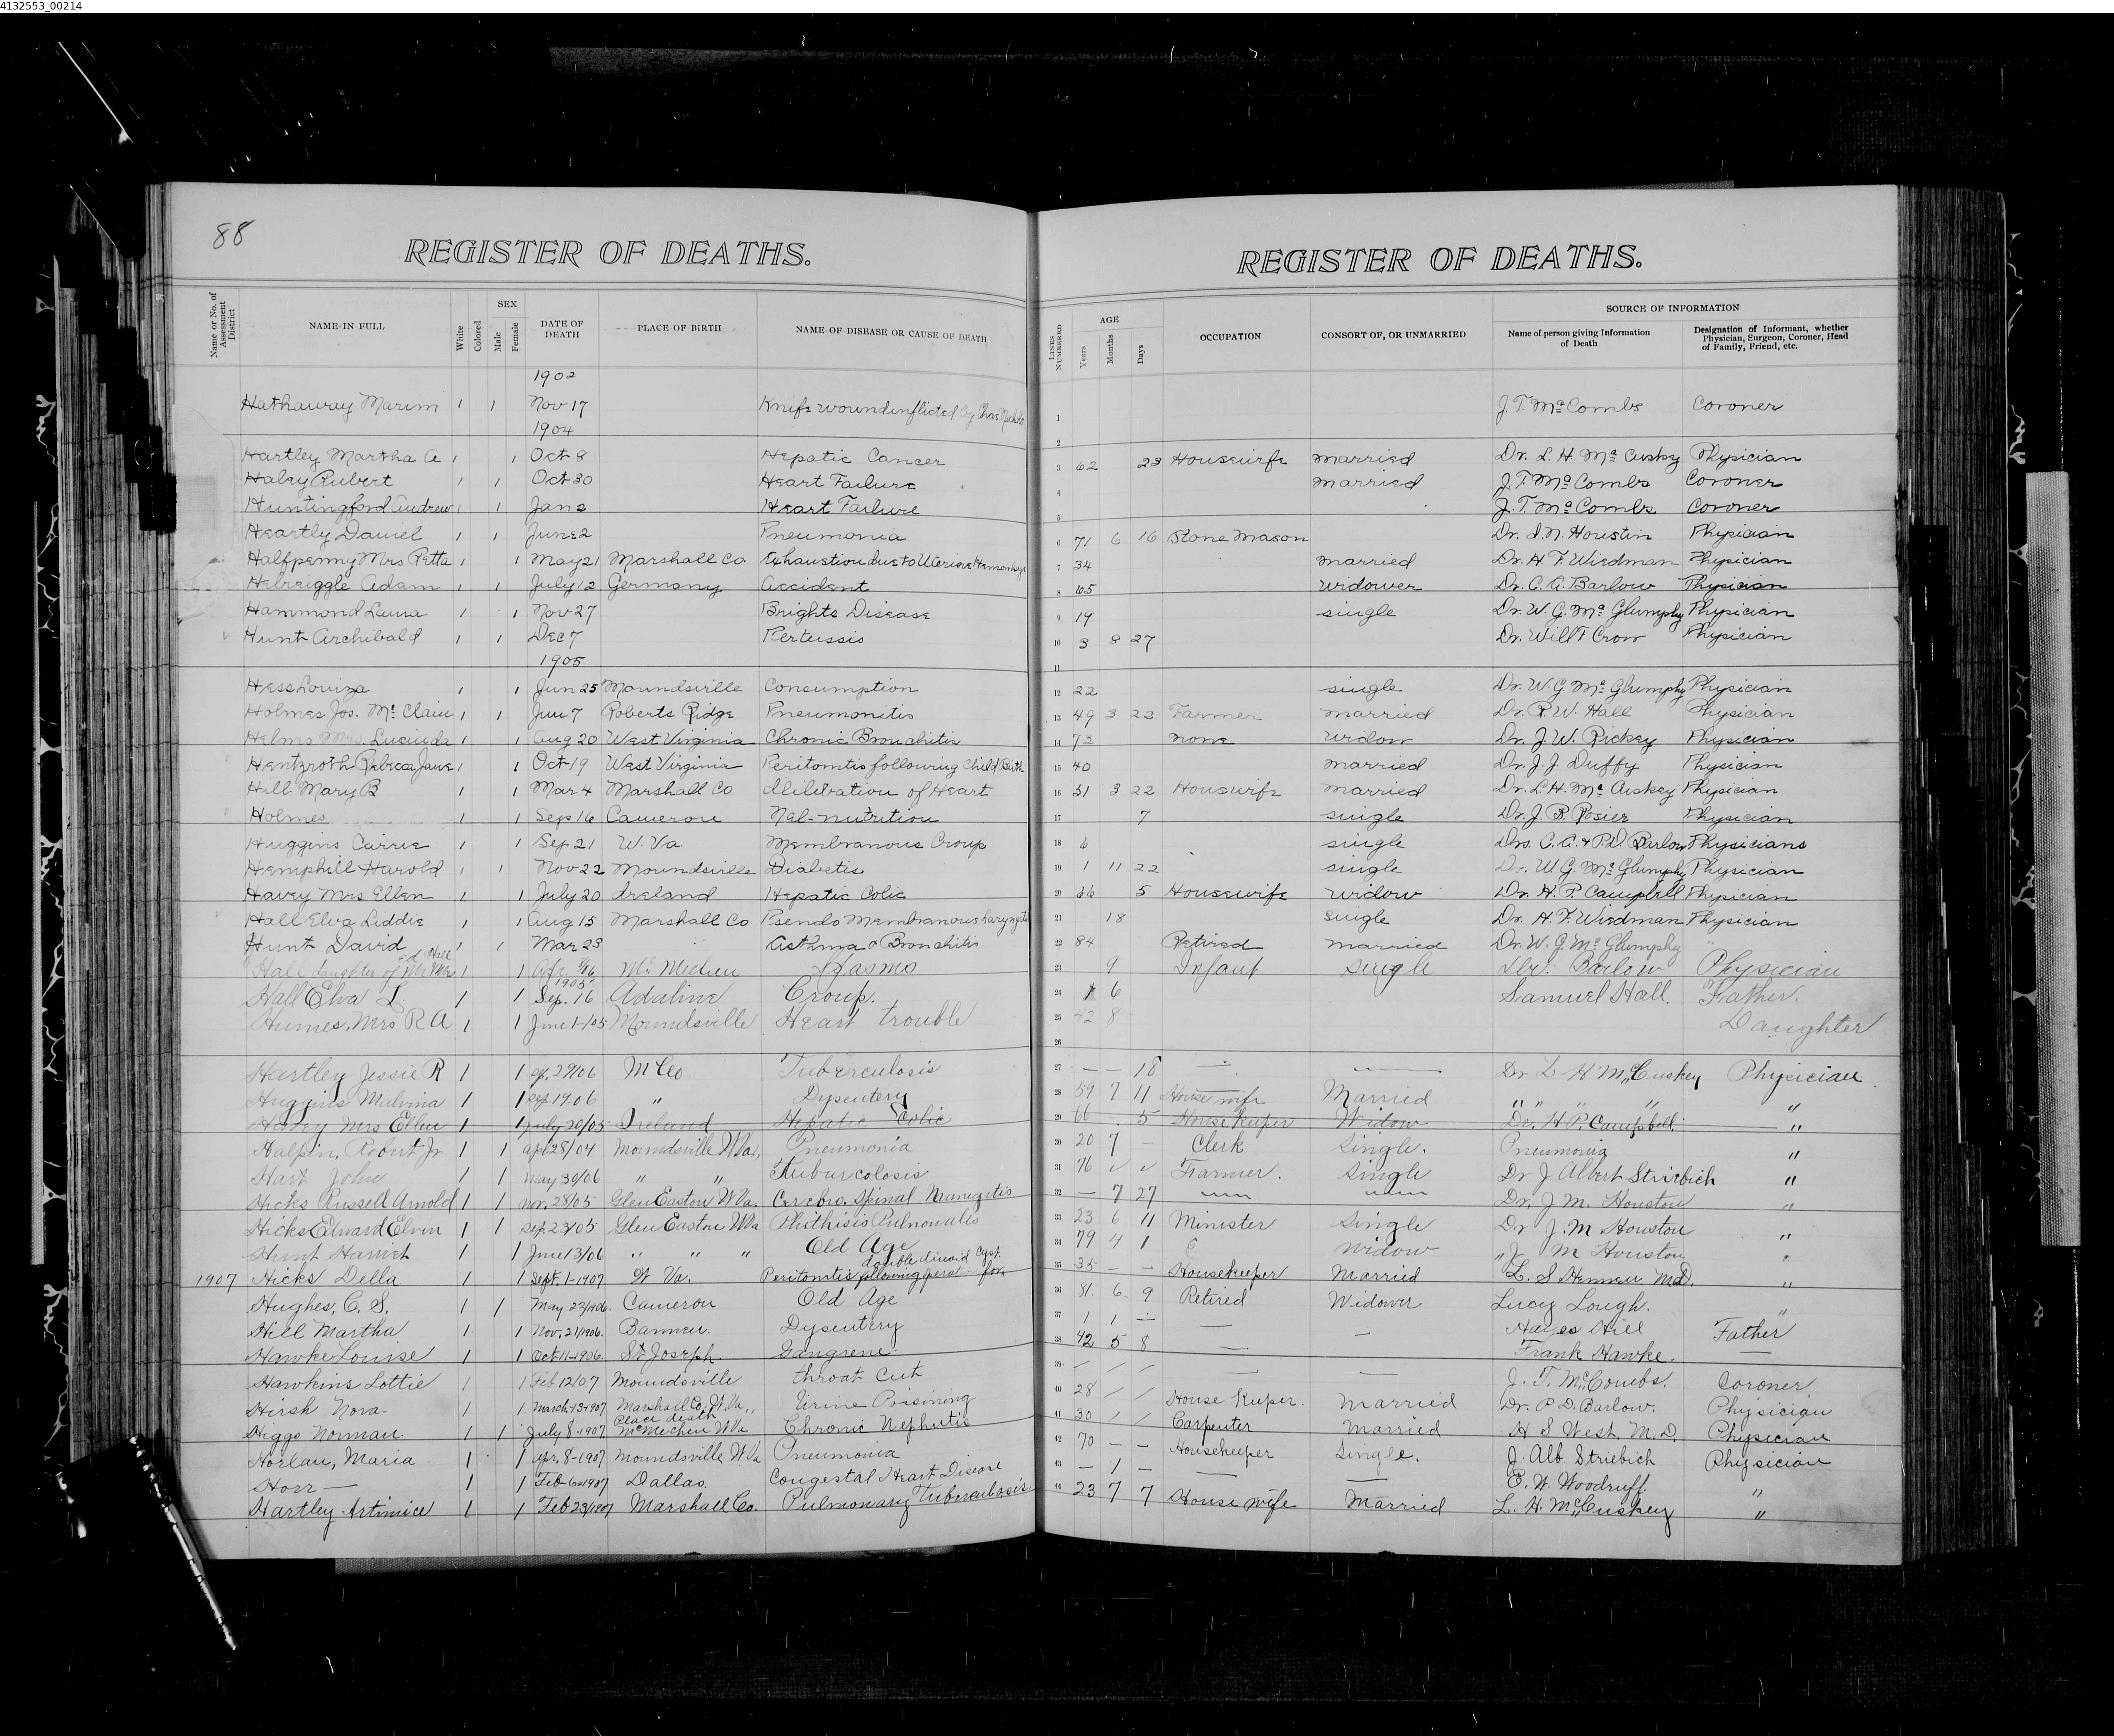 4132553_00214
88
REGISTER OF DEATHS. REGISTER OF DEATHS.
Name or No. of Assessment District NAME IN FULL White Colored SEX Male Female DATE OF DEATH PLACE OF BIRTH NAME OF DISEASE OR CAUSE OF DEATH LINES NUMBERED AGE Years Months Days OCCUPATION CONSORT OF, OR UNMARRIED SOURCE OF INFORMATION Name of person giving Information of Death Designation of Informant, whether Physician, Surgeon, Coroner, Head of Family, Friend, etc.
1902
Hathaway Marim 1 1 Nov 17 Knife wound inflicted by Chas Nichols 1 J. T. McCombs Coroner
1904 2
Hartley Martha A 1 1 Oct 9 Hepatic Cancer 3 62 23 Housewife married Dr. L. H. McCuskey Physician
Haley Rubert 1 1 Oct 30 Heart Failure 4 married J. T. McCombs Coroner
Huntingford Andrew 1 1 Jan 2 Heart Failure 5 J. T. McCombs Coroner
Heartly Daniel 1 1 June 2 Pneumonia 6 71 6 16 Stone Mason Dr. I. N. Houstin Physician
Halfpenny Mrs Retta 1 1 May 21 Marshall Co Exhaustion due to Uterine Hemorrhage 7 34 married Dr. H. F. Wiedman Physician
Hebreiggle Adam 1 1 July 12 Germany Accident 8 65 widower Dr. C. A. Barlow Physician
Hammond Laura 1 1 Nov 27 Brights Disease 9 19 single Dr. W. G. McGlumphy Physician
Hunt Archibald 1 1 Dec 7 Pertussis 10 3 8 27 Dr. Will F Crow Physician
1905 11
Hess Louiza 1 1 Jun 25 Moundsville Consumption 12 22 single Dr. W. G. McGlumphy Physician
Holmes Jos. McClain 1 1 Jun 7 Roberts Ridge Pneumonitis 13 49 3 23 Farmer married Dr. R. W. Hall Physician
Helms Mrs. Lucinda 1 1 Aug 20 West Virginia Chronic Bronchitis 14 73 none widow Dr. J. W. Rickey Physician
Hentzroth Rebecca Jane 1 1 Oct 19 West Virginia Peritontis following Child Birth 15 40 married Dr. J. J. Duffy Physician
Hill Mary B 1 1 Mar 4 Marshall Co dilibration of Heart 16 51 3 22 Housewife married Dr. L H. McCuskey Physician
Holmes 1 1 Sep 16 Cameron Mal-nutrition 17 7 single Dr. J. R. Rosier Physician
Huggins Carrie 1 1 Sep 21 W. Va Membranous Croup 18 6 single Drs. C. A. & P. D. Barlow Physicians
Hemphill Harold 1 1 Nov 22 Moundsville Diabetis 19 1 11 22 single Dr. W G. McGlumphy Physician
Havey Mrs Ellen 1 1 July 20 Ireland Hepatic Colic 20 66 5 Housewife widow Dr. H. P. Campbell Physician
Hall Elva Liddie 1 1 Aug 15 Marshall Co Psendo Membranous Laryngitis 21 18 single Dr. H. F. Wiedman Physician
Hunt David 1 1 Mar 23 Asthma & Bronchitis 22 84 Retired married Dr. W. G. McGlumphy "
Hall daughter of Mr & Mrs Ed Hall 1 1 Apr 8/16 McMechen Spasms 23 9 Infant Single Dr. Barlow Physician
Hall Elva L. 1 1 Sep. 16 1905 Adaline Croup. 24 1 6 Samuel Hall. Father.
Humes, Mrs R A 1 1 June 1-/05 Moundsville Heart trouble 25 42 8 Daughter
26
Hartley Jessie R 1 1 Sep. 29/06 M Co Tuberculosis 27 — — 18 — — Dr L H McCuskey Physician
Huggins Malvina 1 1 Sep 19.06 " Dysentery 28 59 7 11 House wife Married " " " " "
Havey Mrs Ellen 1 1 July 20/05 Ireland Hepatic Colic 29 66 5 House keeper Widow Dr. H P. Campbell. "
Halpin, Robert Jr 1 1 apr 28/04 Moundsville W Va., Pneumonia 30 20 7 — Clerk Single. Pneumonia "
Hart John 1 1 May 30/06 " " Tuburcolosis 31 76 Farmer. Single Dr J Albert Striebich "
Hicks Russell Arnold 1 1 nov. 28/05 Glen Easton W Va. Cerebro Spinal Menigitis 32 — 7 27 Dr. J M. Houston "
Hicks Edward Elvin 1 1 Sep. 23/05 Glen Easton W Va Phthisis Pulmonalis 33 23 6 11 Minister Single Dr J. M Houston "
Hunt Harriet 1 1 June 13/06 " " " Old Age 34 79 4 1 Widow " J M Houston "
1907 Hicks Della 1 1 Sept. 1-1907 W Va. Peritontis following operat for double ovarid Cyst. 35 35 — — Housekeeper Married L. S Hennen M.D. "
Hughes, C. S. 1 1 May 23/1906. Cameron Old Age 36 81. 6. 9 Retired Widower Lucy Lough. "
Hill Martha 1 1 Nov. 21/1906. Bannen. Dysentery 37 1 1 — — — Hayes Hill Father
Hawke Louise 1 1 Oct 11-1906. St Joseph. Gangrene 38 42 5 8 — Frank Hawke. —
Hawkins Lottie 1 1 Feb 12/07 Moundsville throat cut 39 — — J. T. McCombs. Coroner.
Hirsk Nora. 1 1 March-13-1907 Marshall Co, W. Va,, Urine Poisining 40 28 House Keeper. Married Dr. P. D. Barlow. Physician
Higgs Norman. 1 1 July 8-1907 Place death McMechen W Va Chronic Nephritis 41 30 Carpenter Married H S West. M. D. Physician
Horlan, Maria 1 1 Apr. 8-1907 Moundsville W Va Pneumonia 42 70 — — Housekeeper Single. J. Alb. Striebich Physician
Horr — 1 1 Feb-6-1907 Dallas. Congestal Heart Disease 43 — 1 — — — E. W. Woodruff. "
Hartley Artimice 1 1 Feb 23/1907 Marshall Co. Pulmonary Tuberculosis. 44 23 7 7 House wife Married L. H. McCuskey "